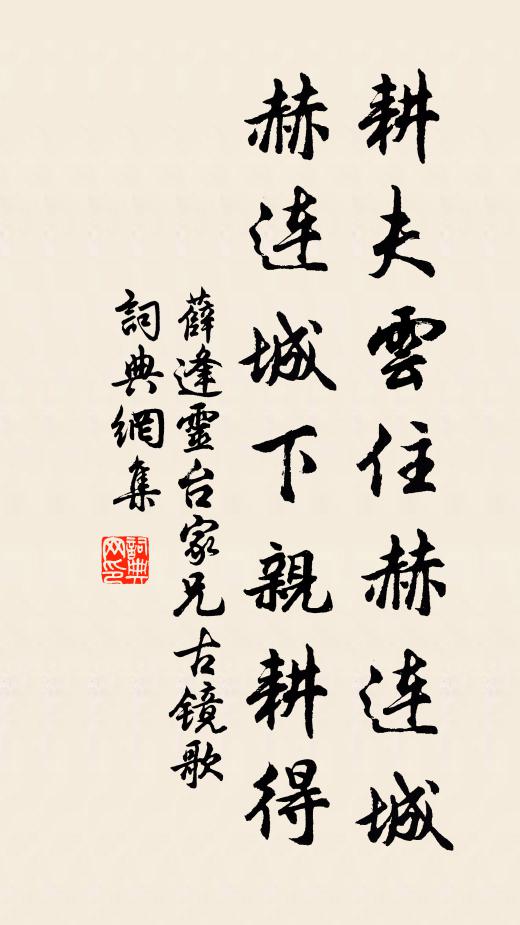 耕夫雲住赫連城
赫連城下親耕得
薛逢靈台家兄古镜歌
詞典網集
詞典网印